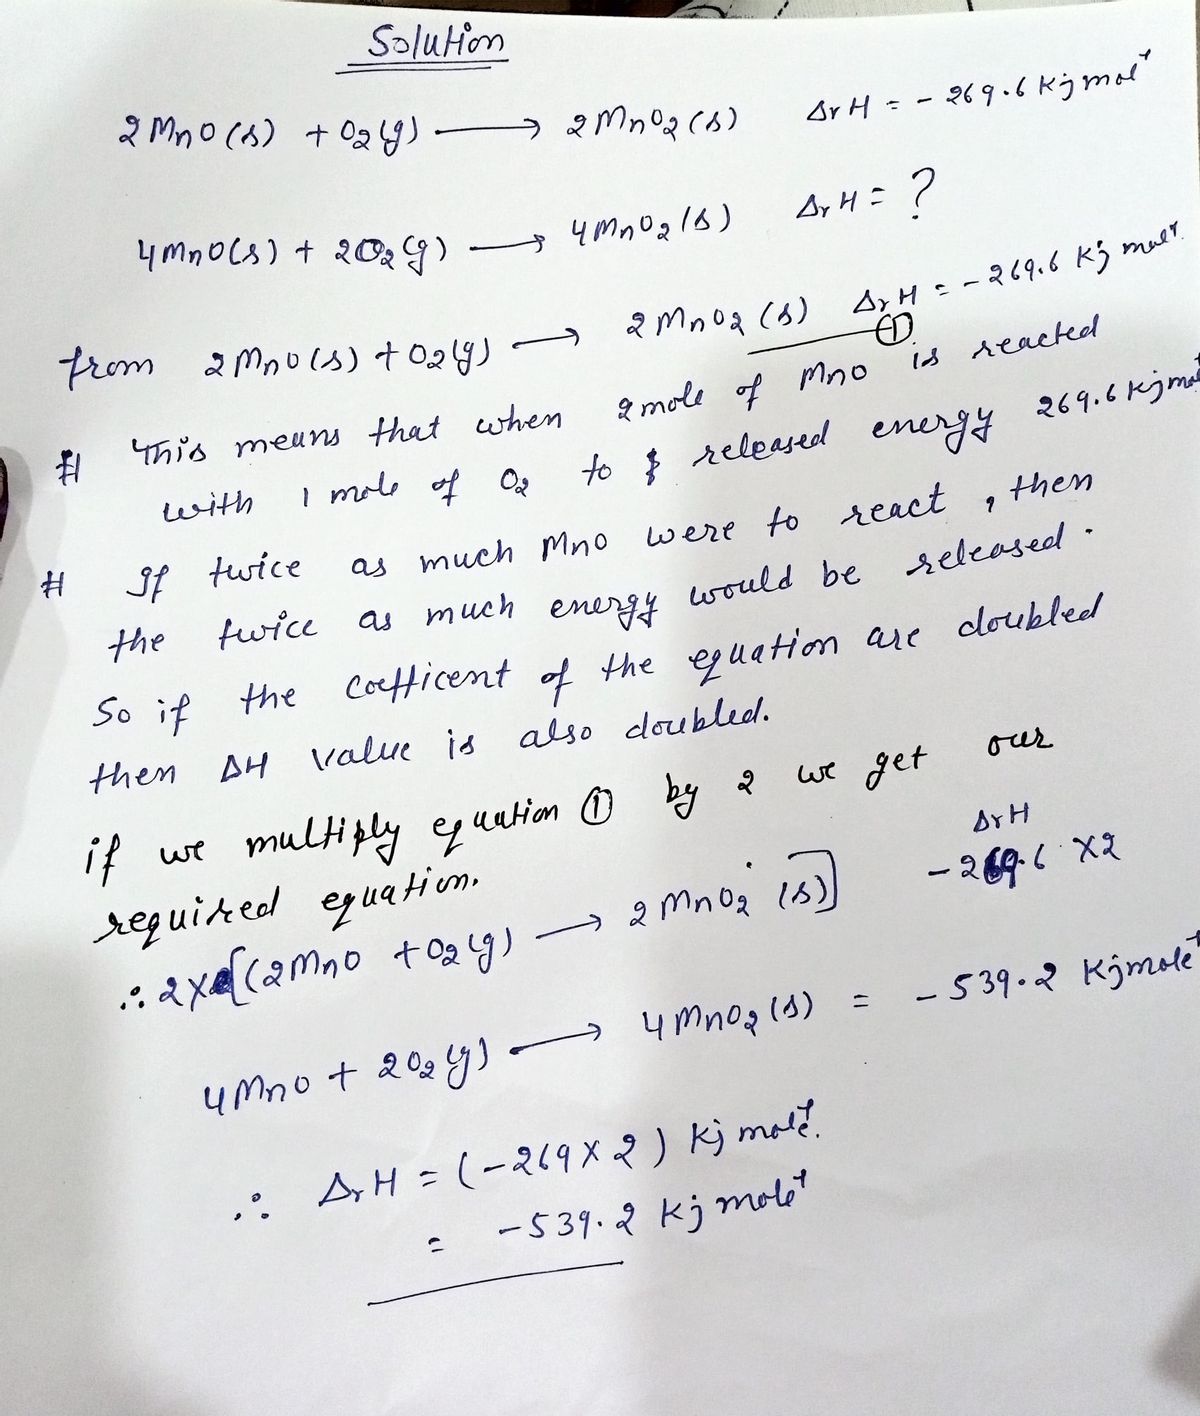 Solution
2MnO(s) + O2(g) → 2MnO2(s) ΔrH = -269.6 Kj mol⁻¹
4MnO(s) + 2O2(g) → 4MnO2(s) ΔrH = ?
from 2MnO(s) + O2(g) → 2MnO2(s) ΔrH = -269.6 Kj mol⁻¹
①
# This means that when 2mole of MnO is reacted
with 1 mole of O2 to released energy 269.6 Kjmol
# If twice as much MnO were to react, then
the twice as much energy would be released.
So if the coefficent of the equation are doubled
then ΔH value is also doubled.
if we multiply equation ① by 2 we get our
required equation.
ΔrH
∴ 2×[(2MnO + O2(g) → 2MnO2(s)] -269.6 ×2
4MnO + 2O2(g) → 4MnO2(s) = -539.2 Kjmole⁻¹
∴ ΔrH = (-269×2) Kj mole⁻¹.
= -539.2 Kj mole⁻¹